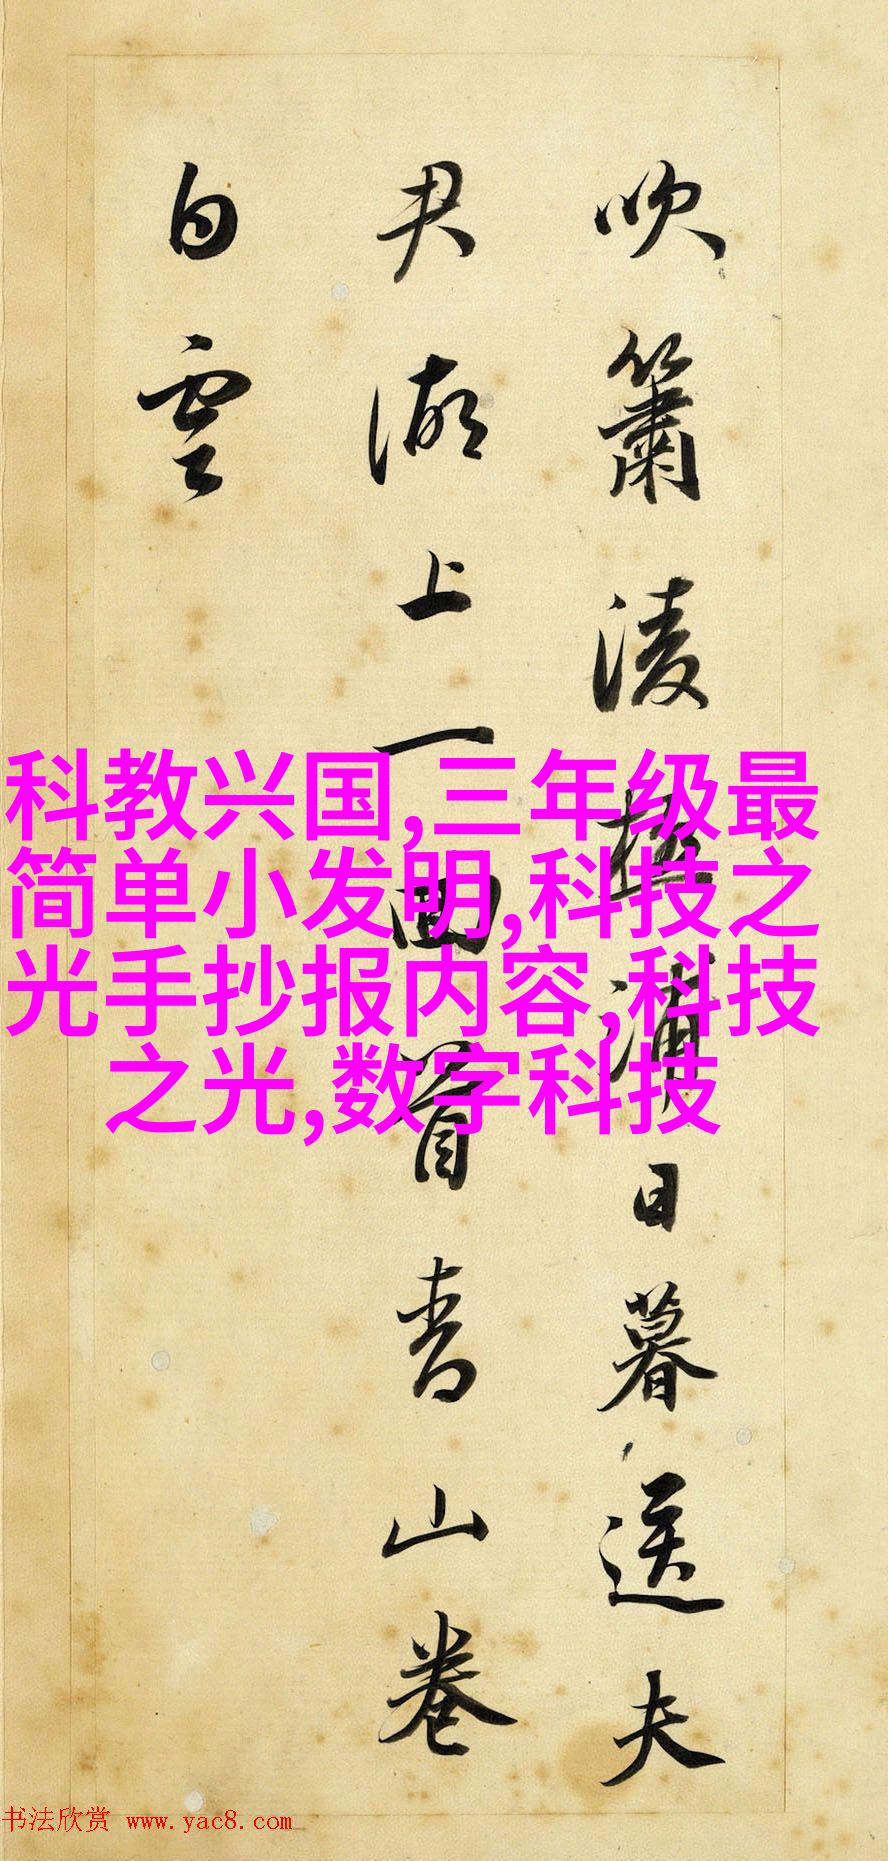 吹簫凌極浦日暮送夫
君湖上一回首青山卷
白雲
科教兴国,三年级最
简单小发明,科技之
光手抄报内容,科技
之光,数字科技
书法欣赏 www.yac8.com